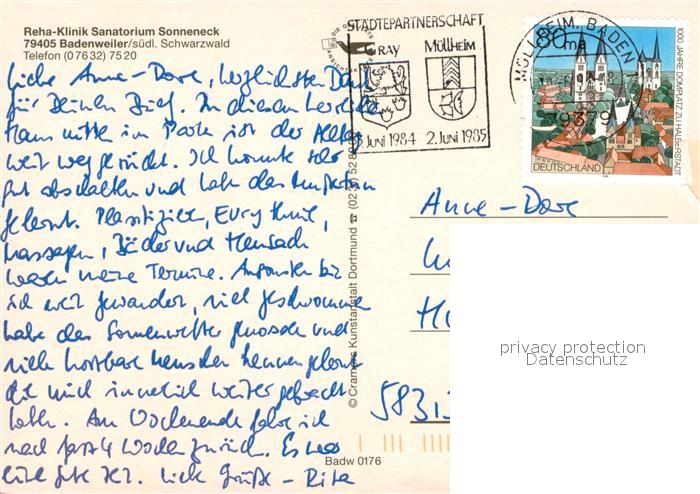 Reha-Klinik Sanatorium Sonneneck
79405 Badenweiler/südl. Schwarzwald
Telefon (0 76 32) 75 20
Liebe Anne-Dore, herzlichsten Dank
für Deinen Brief. In diesem
Haus mitten im Park ist der Alltag
weit weg gerückt. Ich konnte sehr
gut abschalten und habe das
gelernt. Eurythmie,
Massagen, Bäder und
waren meine Termine. Ansonsten bin
ich weit gewandert, viel geschwommen
habe das Sonnenwetter genossen und
viele kostbare Menschen kennengelernt
die mich innerlich weiter gebracht
haben. Am Wochenende fahre ich
nach fast 4 Wochen zurück. Es war
eine gute Zeit. Liebe Grüße - Rita
STÄDTEPARTNERSCHAFT
GRAY MÜLLHEIM
3. Juni 1984 2. Juni 1985
MÜLLHEIM, BADEN
79379
80
1000 JAHRE DOMPLATZ ZU HALBERSTADT
DEUTSCHLAND
© Cramers Kunstanstalt Dortmund ☎
Anne-Dore
5831
Badw 0176
privacy protection
Datenschutz